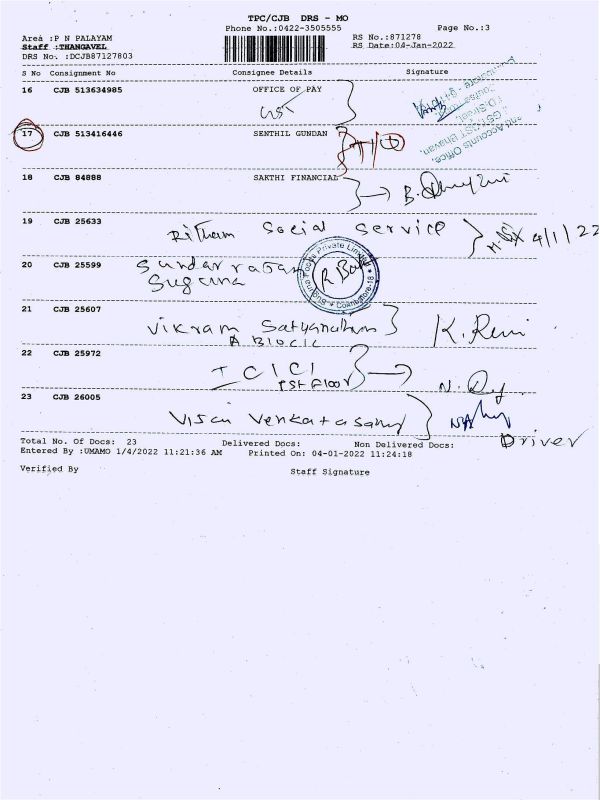 TPC/CJB DRS - MO
Phone No.:0422-3505555 Page No.:3
Area :P N PALAYAM RS No.:871278
Staff :THANGAVEL RS Date:04-Jan-2022
DRS No. :DCJB87127803
S No Consignment No Consignee Details Signature
16 CJB 513634985 OFFICE OF PAY
and Accounts Office,
GST Bhavan,
17 CJB 513416446 SENTHIL GUNDAN
18 CJB 84888 SAKTHI FINANCIAL
19 CJB 25633
Social Service 4/1/22
20 CJB 25599
Sundar
Suguna
Private Limited
Coimbatore-18
21 CJB 25607
Vikram K. Reni
A Block
22 CJB 25972
ICICI
1st Floor
23 CJB 26005
Driver
Total No. Of Docs: 23 Delivered Docs: Non Delivered Docs:
Entered By :UMAMO 1/4/2022 11:21:36 AM Printed On: 04-01-2022 11:24:18
Verified By Staff Signature